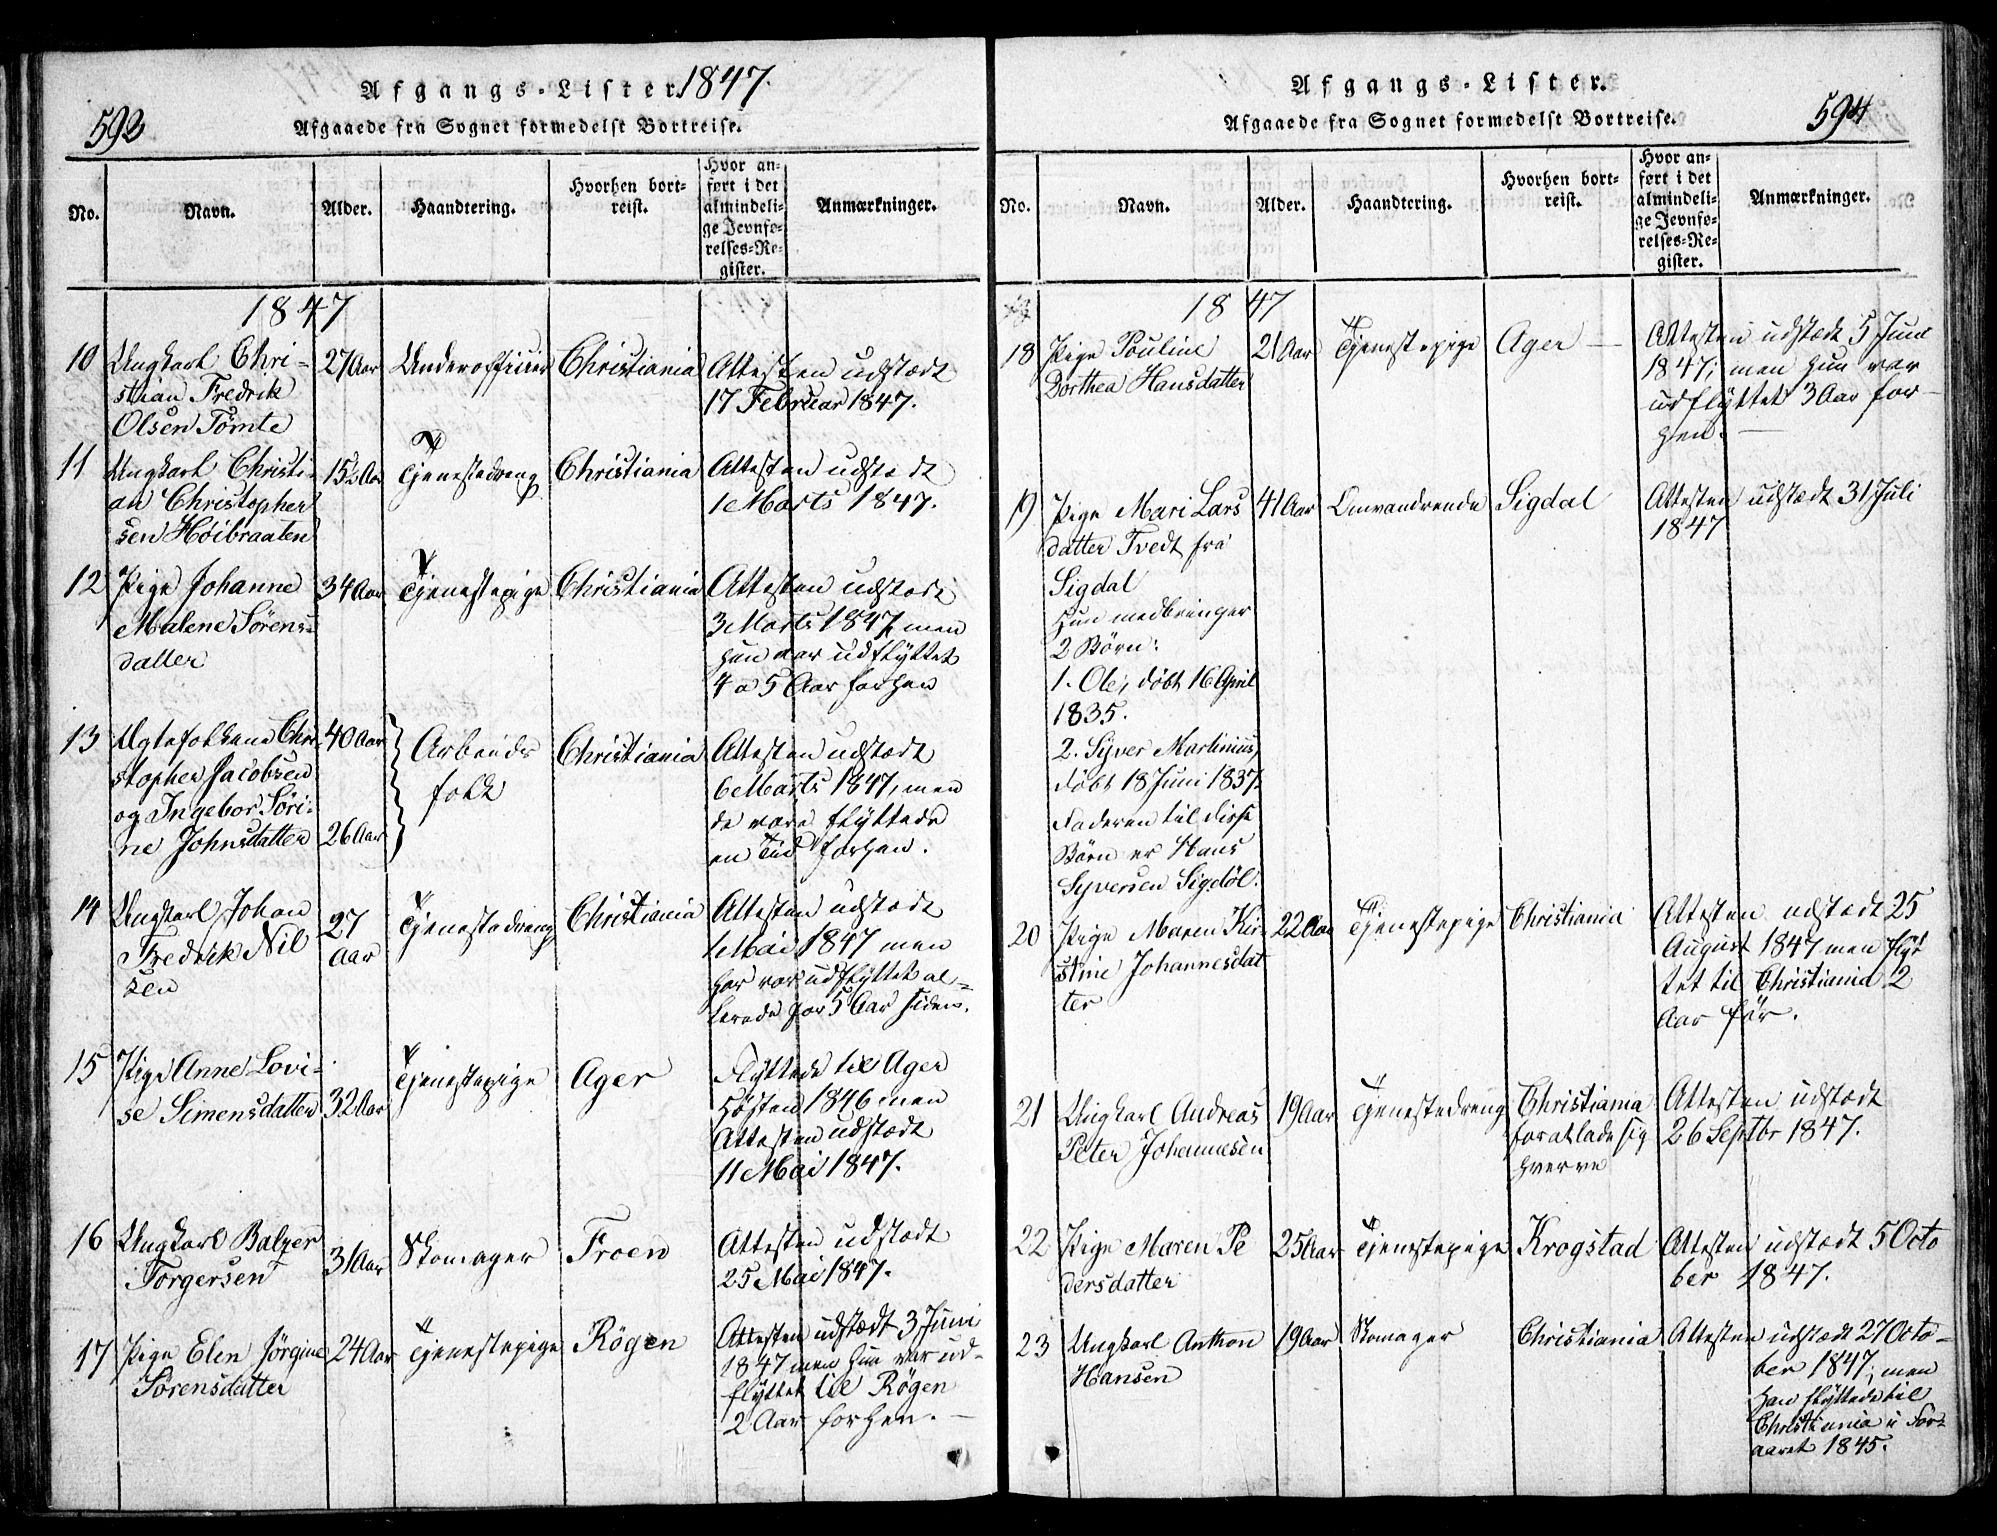 592
Afgangs-Lister 1847.
Afgaaede fra Sognet formedelst Bortreise.
No.
Navn.
Alder.
Haandtering.
Hvorhen bort-
reist.
Hvor an-
ført i det
almindeli-
ge Jevnfø-
relses-Re-
gister.
Anmærkninger.
1847
10 Ungkarl Chri-
stian Fredrik
Olsen Tømte
27 Aar
Underofficier
Christiania
Attesten udstædt
17 Februar 1847.
11 Ungkarl Christi-
an Christopher
sen Høibraaten
15½ Aar
Tjenestedreng
Christiania
Attesten udstædt
1 Marts 1847.
12 Pige Johanne
Malene Sørens-
datter
34 Aar
Tjenestepige
Christiania
Attesten udstædt
3 Marts 1847, men
hun var udflyttet
4 a 5 Aar forhen
13 Ægtefolkene Chri-
stopher Jacobsen
og Ingebor Søri-
ne Johnsdatter
40 Aar
26 Aar
Arbeids
folk
Christiania
Attesten udstædt
6 Marts 1847, men
de vare flyttede
en Tid forhen.
14 Ungkarl Johan
Fredrik Nil
sen
27
Aar
Tjenestedreng
Christiania
Attesten udstædt
1 Mai 1847 men
har var udflyttet al-
lerede for 5 Aar siden.
15 Pige Anne Lovi-
se Simensdatter
32 Aar
Tjenestepige
Ager
Flyttede til Ager
Høsten 1846 men
Attesten udstædt
11 Mai 1847.
16 Ungkarl Balzer
Torgersen
31 Aar
Skomager
Froen
Attesten udstædt
25 Mai 1847.
17 Pige Elen Jørgine
Sørensdatter
24 Aar
Tjenestepige
Røgen
Attesten udstædt 3 Juni
1847 men hun var ud-
flyttet til Røgen
2 Aar forhen. —
594
Afgangs-Lister.
Afgaaede fra Sognet formedelst Bortreise.
No.
Navn.
Alder.
Haandtering.
Hvorhen bort-
reist.
Hvor an-
ført i det
almindeli-
ge Jevnfø-
relses-Re-
gister.
Anmærkninger.
1847
18 Pige Pouline
Dorthea Hansdatter
21 Aar
Tjenestepige
Ager —
Attesten udstædt 5 Juni
1847; men hun var
udflyttet 3 Aar for-
hen. —
19 Pige Mari Lars
datter Tvedt fra
Sigdal
Hun medbringer
2 Børn:
1. Ole, døbt 16 April
1835.
2. Syver Martinius,
døbt 18 Juni 1837.
Faderen til disse
Børn er Hans
Syversen Sigdøl.
41 Aar
Omvandrende
Sigdal
Attesten udstædt 31 Juli
1847
20 Pige Maren Kir-
stine Johannesdat
ter
22 Aar
Tjenestepige
Christiania
Attesten udstædt 25
August 1847 men flyt
tet til Christiania 2
Aar før.
21 Ungkarl Andreas
Peter Johannesen
19 Aar
Tjenestedreng
Christiania
for at lade sig
hverve
Attesten udstædt
26 Septbr 1847.
22 Pige Maren Pe
dersdatter
25 Aar
Tjenestepige
Krogstad
Attesten udstædt 5 Octo
ber 1847.
23 Ungkarl Anthon
Hansen
19 Aar
Skomager
Christiania
Attesten udstædt 27 Octo-
ber 1847; men
han flyttede til
Christiania i For-
aaret 1845.